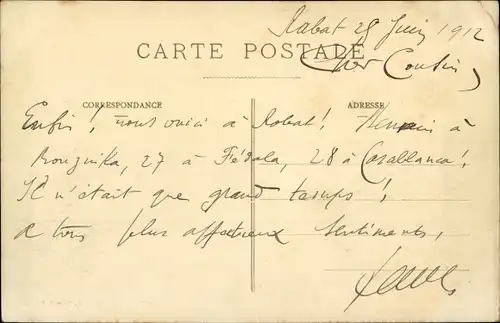 Rabat 25 Juin 1912
CARTE POSTALE
Cher Cousin,
CORRESPONDANCE
ADRESSE
Enfin! nous voici à Rabat! Demain à
Bouznika, 27 à Fédala, 28 à Casablanca!
Il n'était que grand temps!
A tous plus affectueux sentiments,